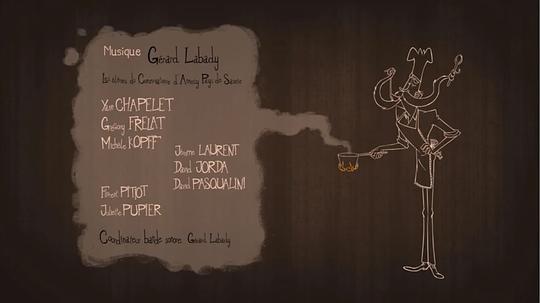 Musique Gérard Labady
Les élèves du Conservatoire d'Annecy Pays de Savoie
Yvan CHAPELET
Grégory FRELAT
Michele KOPFF
Jérome LAURENT
David JORDA
David PASQUALINI
PITIOT
Juliette PUPIER
Coordinateur bande sonore Gérard Labady